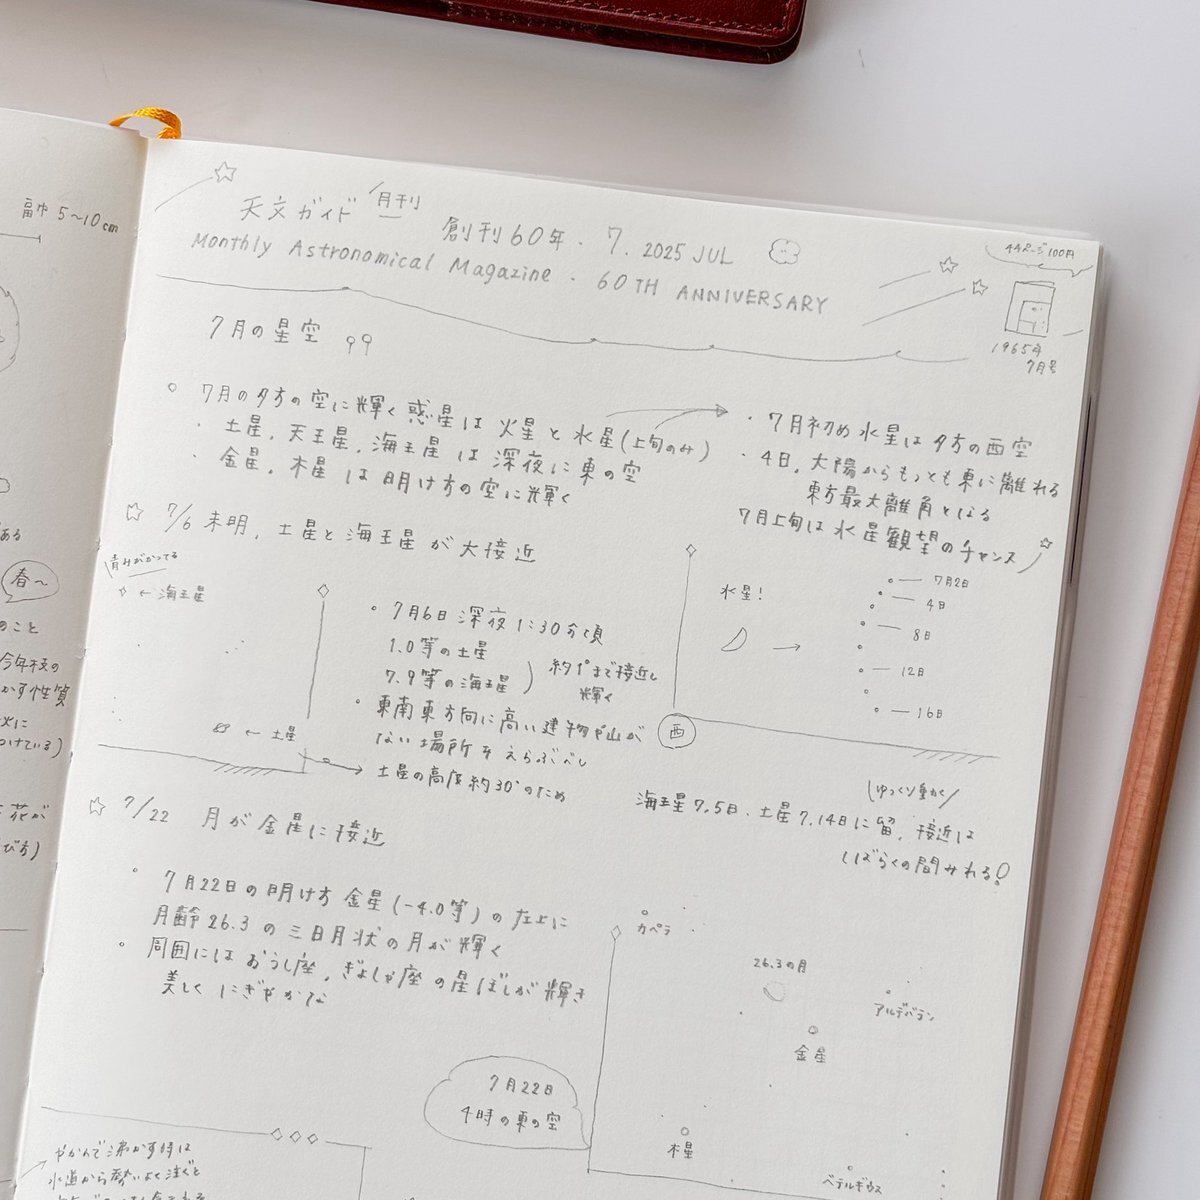 幅 5〜10cm
ある
春〜
のこと
今年枝の
かす性質
火に
つけている)
花が
び方)
天文ガイド 月刊
創刊60年. 7. 2025 JUL
Monthly Astronomical Magazine. 60TH ANNIVERSARY
44ページ100円
1965年
7月号
7月の星空
7月の夕方の空に輝く惑星は火星と水星(上旬のみ)
・土星、天王星、海王星は深夜に東の空
・金星、木星は明け方の空に輝く
・7月初め水星は夕方の西空
・4日、太陽からもっとも東に離れる
東方最大離角となる
7月上旬は水星観望のチャンス
☆ 7/6 未明、土星と海王星が大接近
青みがかってる
← 海王星
← 土星
7月6日深夜1:30分頃
1.0等の土星
7.9等の海王星
約1°まで接近し
輝く
東南東方向に高い建物や山が
ない場所をえらぶべし
土星の高度約30°のため
水星!
7月2日
4日
8日
12日
16日
西
ゆっくり動く
海王星7.5日、土星7.14日に留、接近は
しばらくの間みれる!
☆ 7/22 月が金星に接近
7月22日の明け方金星(-4.0等)の左上に
月齢26.3の三日月状の月が輝く
周囲にはおうし座、ぎょしゃ座の星ぼしが輝き
美しくにぎやかな
カペラ
26.3の月
アルデバラン
金星
木星
ベテルギウス
7月22日
4時の東の空
やかんで沸かす時は
水道から勢いよく注ぐと